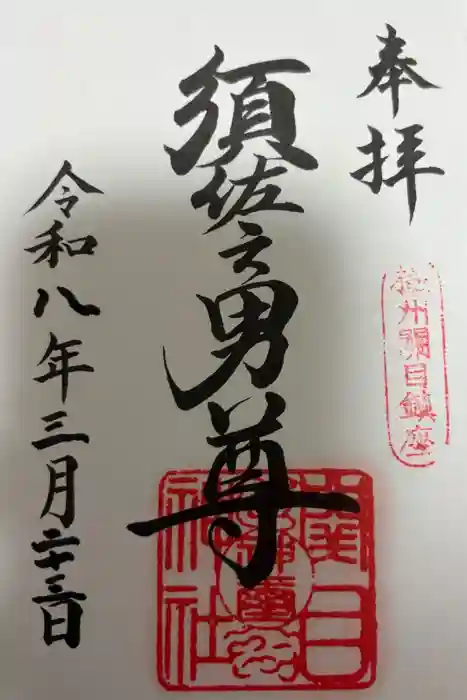 奉拝
州 鎮座
須佐之男尊
神社
令和八年三月二十三日